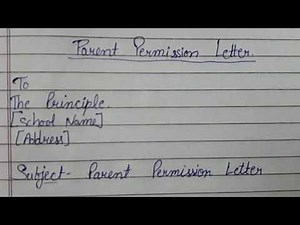 Parent Permission Letter.
To
The Principle.
[School Name]
[Address]
Subject- Parent Permission Letter